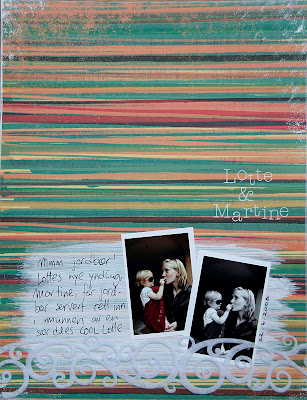 Lotte
&
Martine
Mmmm jordbær!
Lottes nye yndling,
Martine, får jord-
bær servert rett inn
i munnen av en
særdeles COOL Lotte